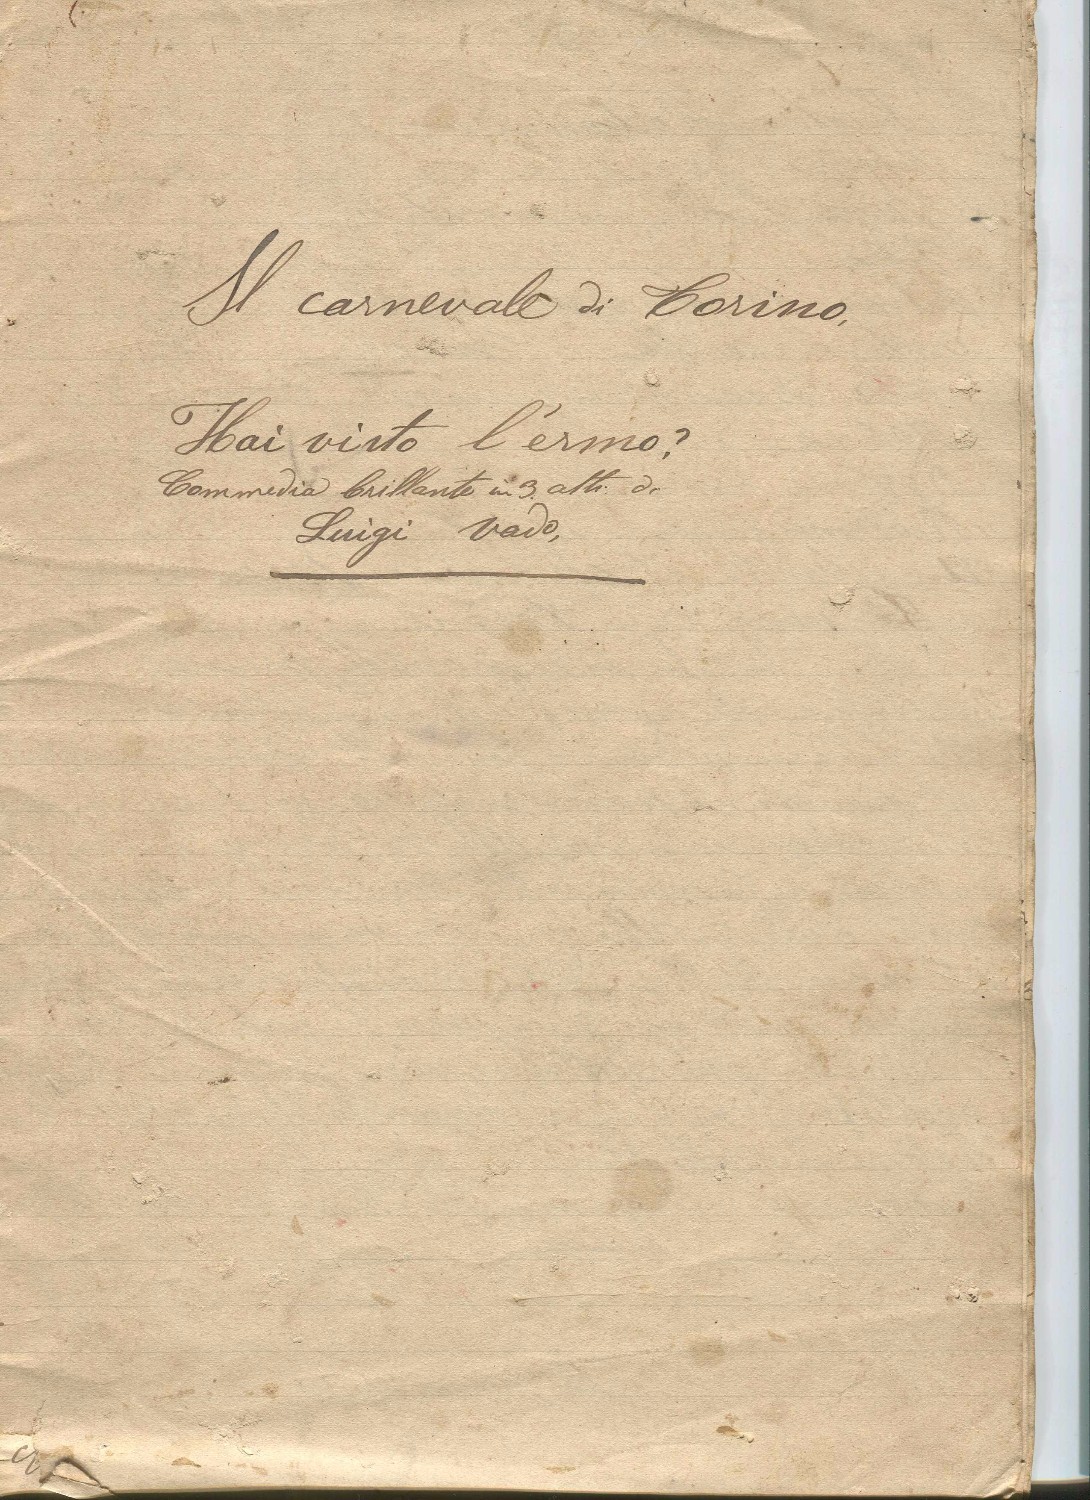 Il carnevale di Torino.
Hai visto l'ermo?
Commedia brillante in 3. atti di
Luigi Vado,